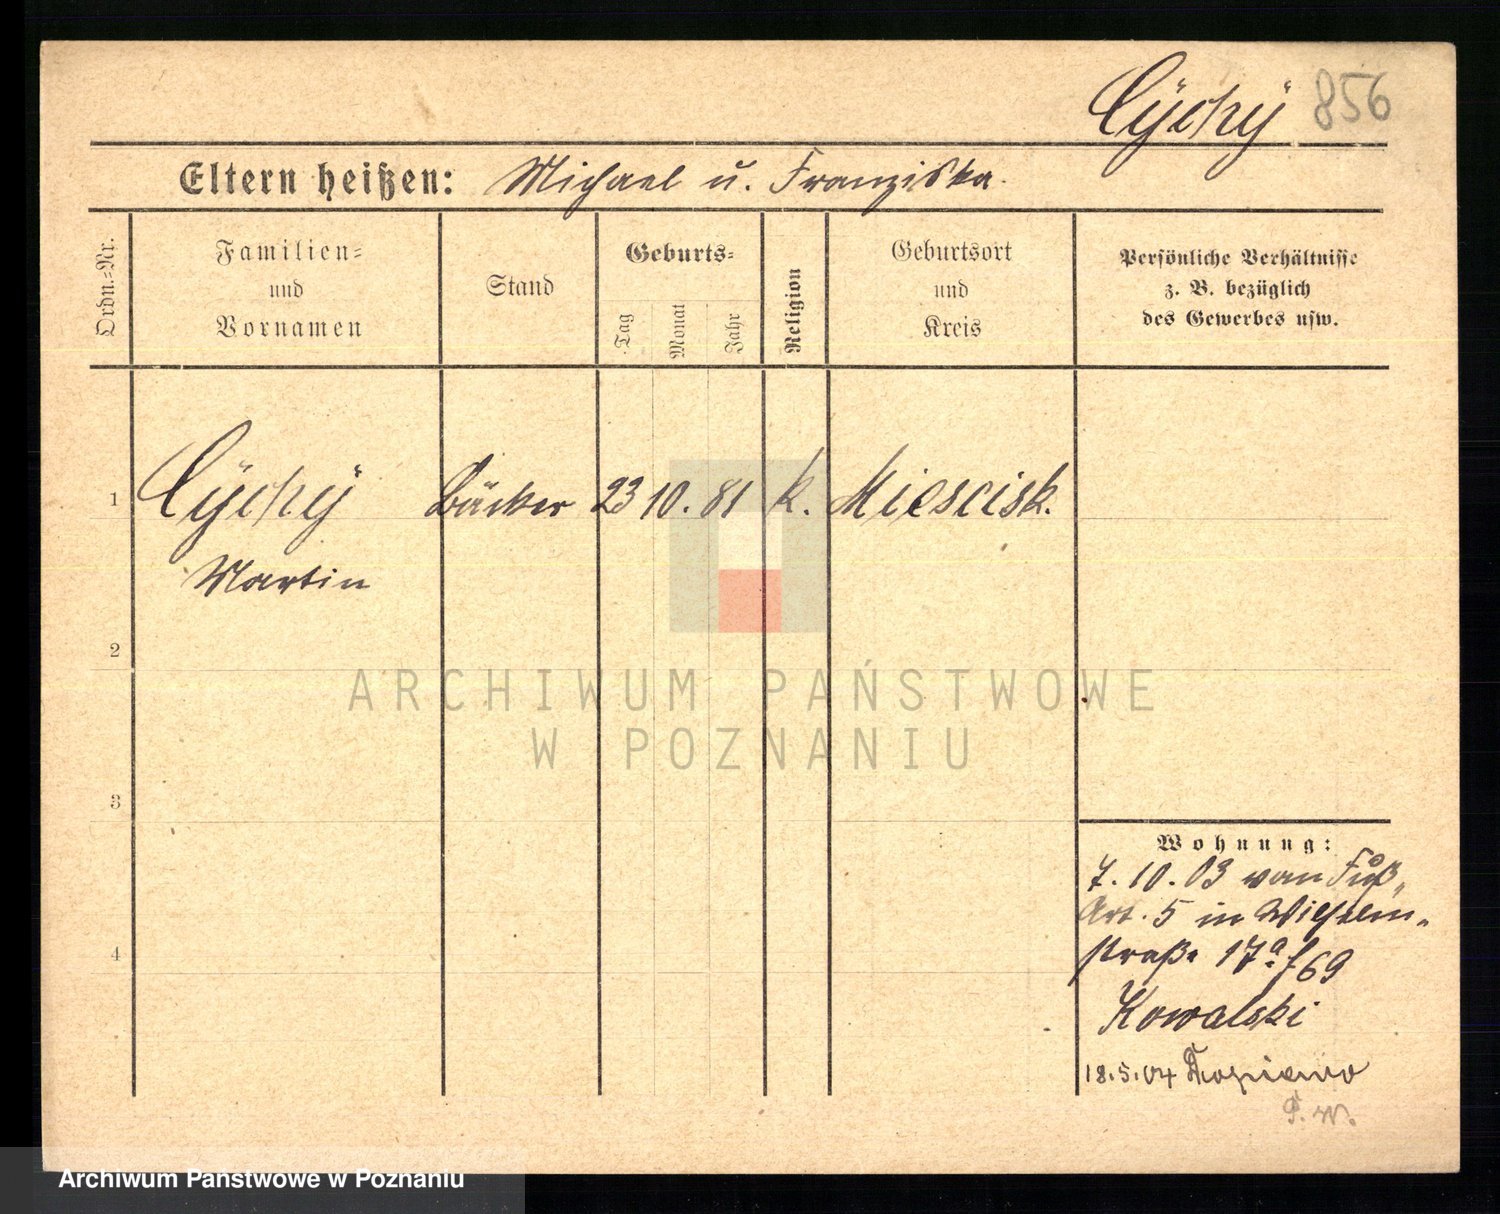 Cÿchÿ 856
Eltern heißen: Michael u. Franziska.
Ordn.-Nr.
Familien-
und
Vornamen
Stand
Geburts-
Tag
Monat
Jahr
Religion
Geburtsort
und
Kreis
Persönliche Verhältnisse
z. B. bezüglich
des Gewerbes usw.
1 Cÿchÿ Bäcker 23 10. 81 k. Miescisk.
Martin
2
ARCHIWUM PAŃSTWOWE
W POZNANIU
3
Wohnung:
7. 10. 03 von
5 in Wilhelm-
straße 17a f 69
Kowalski
4
18.5.04
P. W.
Archiwum Państwowe w Poznaniu